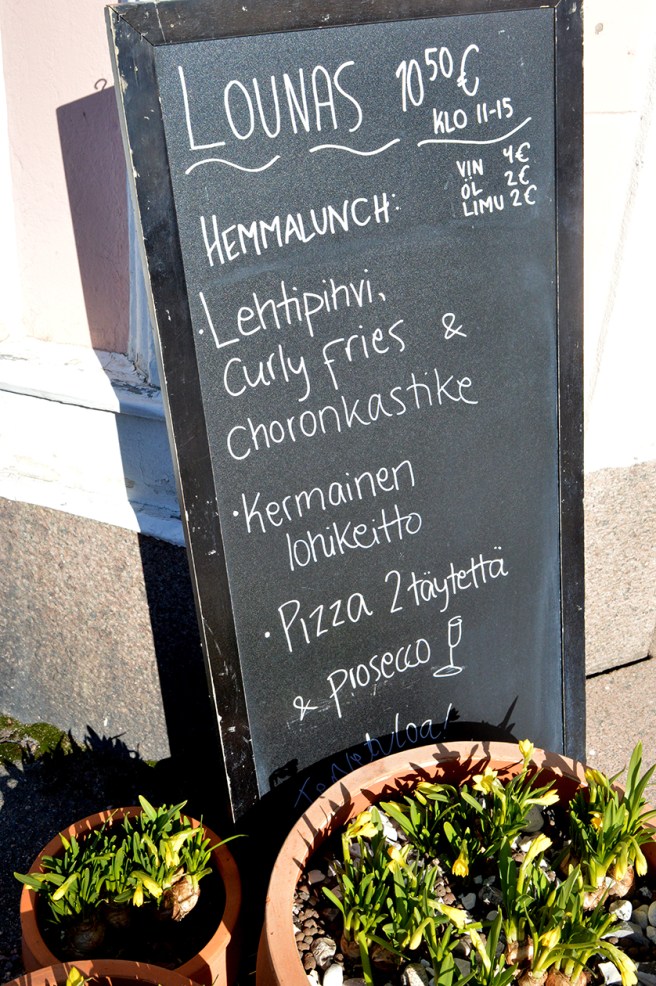 LOUNAS 10,50 €
KLO 11-15
VIN 4€
ÖL 2€
LIMU 2€
HEMMALUNCH:
· Lehtipihvi,
Curly fries &
choronkastike
· Kermainen
lohikeitto
· Pizza 2 täytettä
& prosecco